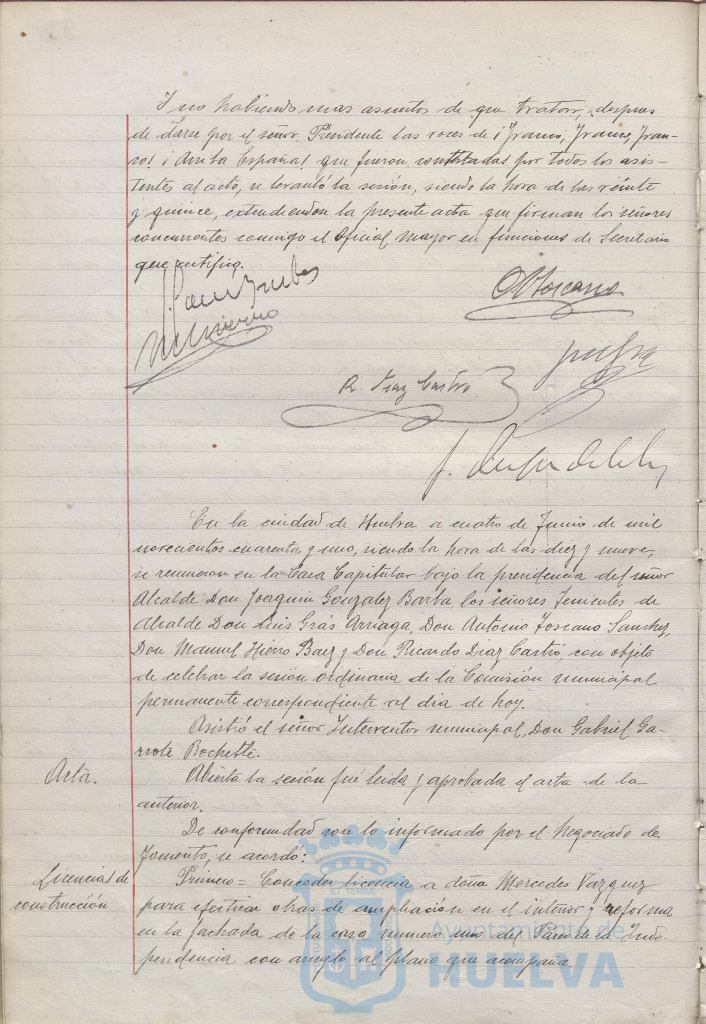 Y no habiendo mas asuntos de que tratar, despues
de darse por el señor Presidente las voces de ¡Franco, Franco, Fran-
co! ¡Arriba España! que fueron contestadas por todos los asis-
tentes al acto, se levantó la sesión, siendo la hora de las veinte
y quince, extendiendose la presente acta que firman los señores
concurrentes conmigo el Oficial Mayor en funciones de Secretario
que certifico.
R. Diaz Castro
En la ciudad de Huelva a cuatro de Junio de mil
novecientos cuarenta y uno, siendo la hora de las diez y nueve,
se reunieron en la Casa Capitular bajo la presidencia del señor
Alcalde Don Joaquin Gonzalez Barba los señores Tenientes de
Alcalde Don Luis Gras Arriaga, Don Antonio Toscano Sanchez,
Don Manuel Hierro Baez y Don Ricardo Diaz Castro, con objeto
de celebrar la sesión ordinaria de la Comisión municipal
permanente correspondiente al dia de hoy.
Asistió el señor Interventor municipal, Don Gabriel Ga-
rrote Rochette.
Acta.
Abierta la sesión fué leida y aprobada el acta de la
anterior.
De conformidad con lo informado por el Negociado de
Fomento, se acordó:
Licencias de
construcción
Primero = Conceder licencia a doña Mercedes Vazquez
para efectuar obras de ampliación en el interior y reforma
en la fachada de la casa numero uno del Paseo de la Inde
pendencia con arreglo al plano que acompaña.
Ayuntamiento de
HUELVA